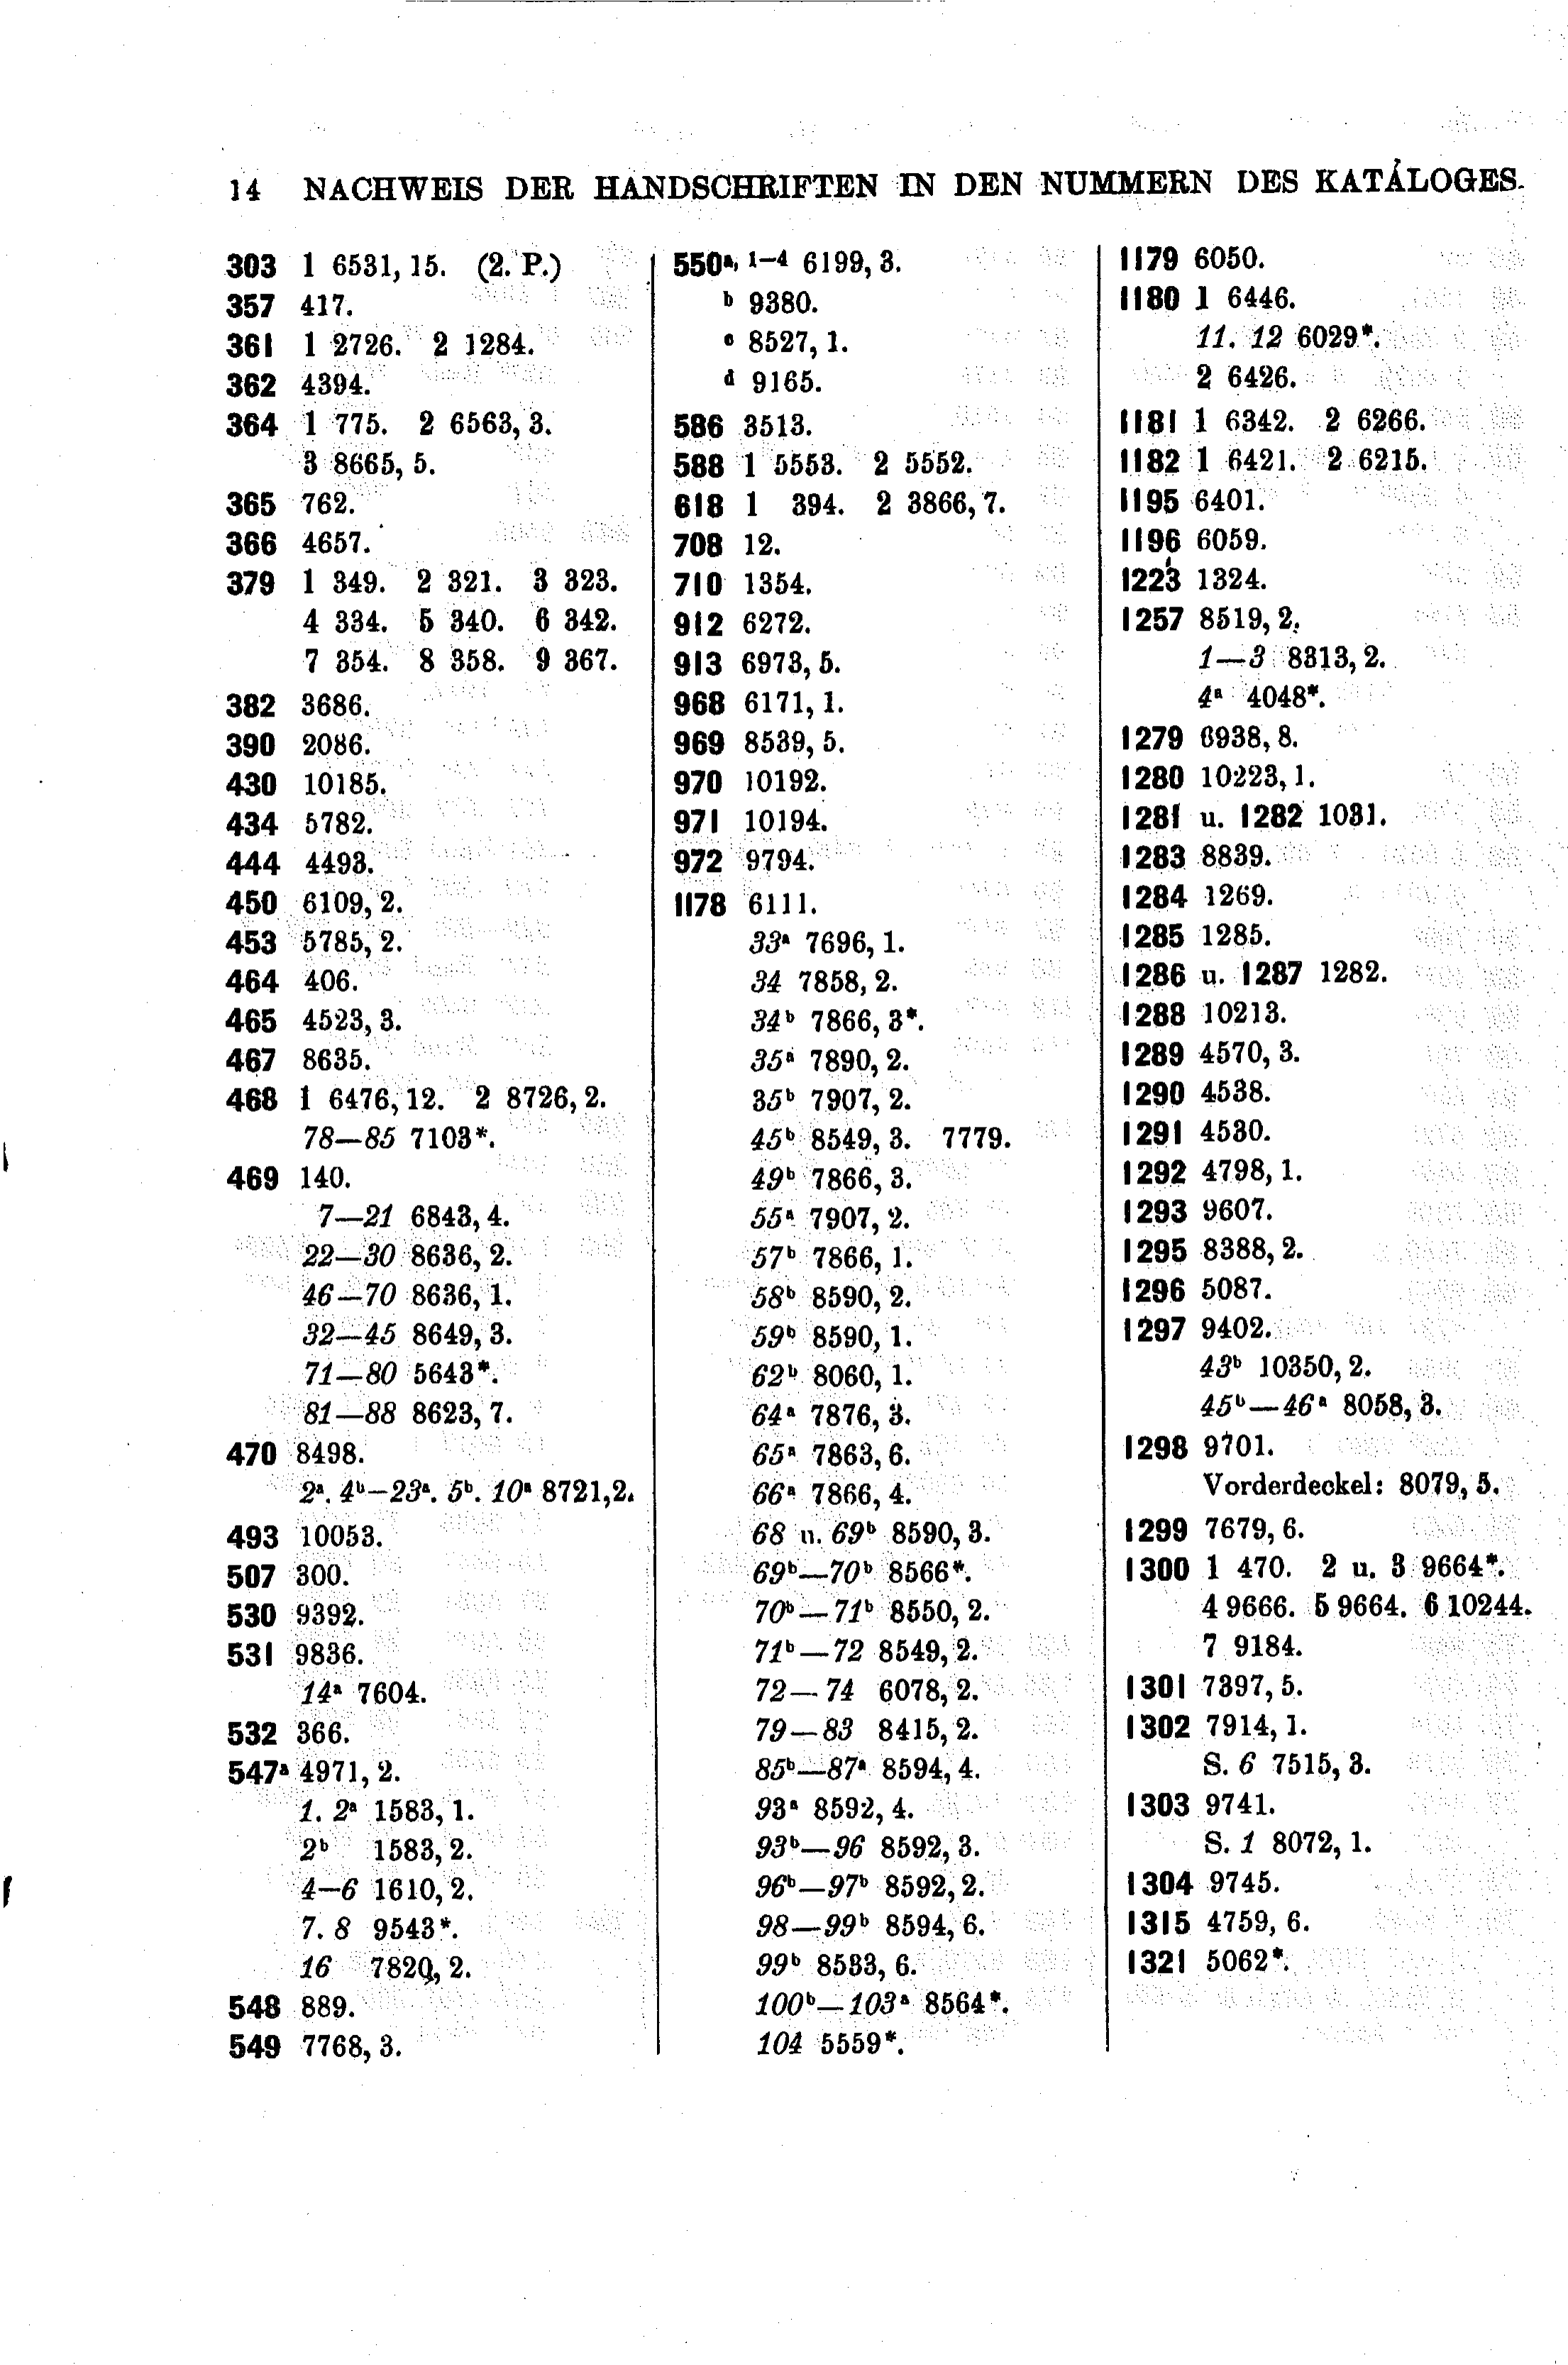 14 NACHWEIS DER HANDSCHRIFTEN IN DEN NUMMERN DES KATALOGES.
303 1 6531, 15. (2. P.)
357 417.
361 1 2726. 2 1284.
362 4394.
364 1 775. 2 6563, 3.
3 8665, 5.
365 762.
366 4657.
379 1 349. 2 321. 3 323.
4 334. 5 340. 6 342.
7 354. 8 358. 9 367.
382 3686.
390 2086.
430 10185.
434 5782.
444 4493.
450 6109, 2.
453 5785, 2.
464 406.
465 4523, 3.
467 8635.
468 1 6476, 12. 2 8726, 2.
78—85 7103*.
469 140.
7—21 6843, 4.
22—30 8636, 2.
46—70 8636, 1.
32—45 8649, 3.
71—80 5643*.
81—88 8623, 7.
470 8498.
2ᵃ. 4ᵇ—23ᵃ. 5ᵇ. 10ᵃ 8721,2.
493 10053.
507 300.
530 9392.
531 9836.
14ᵃ 7604.
532 366.
547ᵃ 4971, 2.
1. 2ᵃ 1583, 1.
2ᵇ 1583, 2.
4—6 1610, 2.
7. 8 9543*.
16 7820, 2.
548 889.
549 7768, 3.
550ᵃ, ¹⁻⁴ 6199, 3.
ᵇ 9380.
ᶜ 8527, 1.
ᵈ 9165.
586 3513.
588 1 5553. 2 5552.
618 1 394. 2 3866, 7.
708 12.
710 1354.
912 6272.
913 6973, 5.
968 6171, 1.
969 8539, 5.
970 10192.
971 10194.
972 9794.
1178 6111.
33ᵃ 7696, 1.
34 7858, 2.
34ᵇ 7866, 3*.
35ᵃ 7890, 2.
35ᵇ 7907, 2.
45ᵇ 8549, 3. 7779.
49ᵇ 7866, 3.
55ᵃ 7907, 2.
57ᵇ 7866, 1.
58ᵇ 8590, 2.
59ᵇ 8590, 1.
62ᵇ 8060, 1.
64ᵃ 7876, 3.
65ᵃ 7863, 6.
66ᵃ 7866, 4.
68 u. 69ᵇ 8590, 3.
69ᵇ—70ᵇ 8566*.
70ᵇ—71ᵇ 8550, 2.
71ᵇ—72 8549, 2.
72—74 6078, 2.
79—83 8415, 2.
85ᵇ—87ᵃ 8594, 4.
93ᵃ 8592, 4.
93ᵇ—96 8592, 3.
96ᵇ—97ᵇ 8592, 2.
98—99ᵇ 8594, 6.
99ᵇ 8583, 6.
100ᵇ—103ᵃ 8564*.
104 5559*.
1179 6050.
1180 1 6446.
11. 12 6029*.
2 6426.
1181 1 6342. 2 6266.
1182 1 6421. 2 6215.
1195 6401.
1196 6059.
1223 1324.
1257 8519, 2.
1—3 8313, 2.
4ᵃ 4048*.
1279 6938, 8.
1280 10223, 1.
1281 u. 1282 1031.
1283 8839.
1284 1269.
1285 1285.
1286 u. 1287 1282.
1288 10213.
1289 4570, 3.
1290 4538.
1291 4530.
1292 4798, 1.
1293 9607.
1295 8388, 2.
1296 5087.
1297 9402.
43ᵇ 10350, 2.
45ᵇ—46ᵃ 8058, 3.
1298 9701.
Vorderdeckel: 8079, 5.
1299 7679, 6.
1300 1 470. 2 u. 3 9664*.
4 9666. 5 9664. 6 10244.
7 9184.
1301 7397, 5.
1302 7914, 1.
S. 6 7515, 3.
1303 9741.
S. 1 8072, 1.
1304 9745.
1315 4759, 6.
1321 5062*.